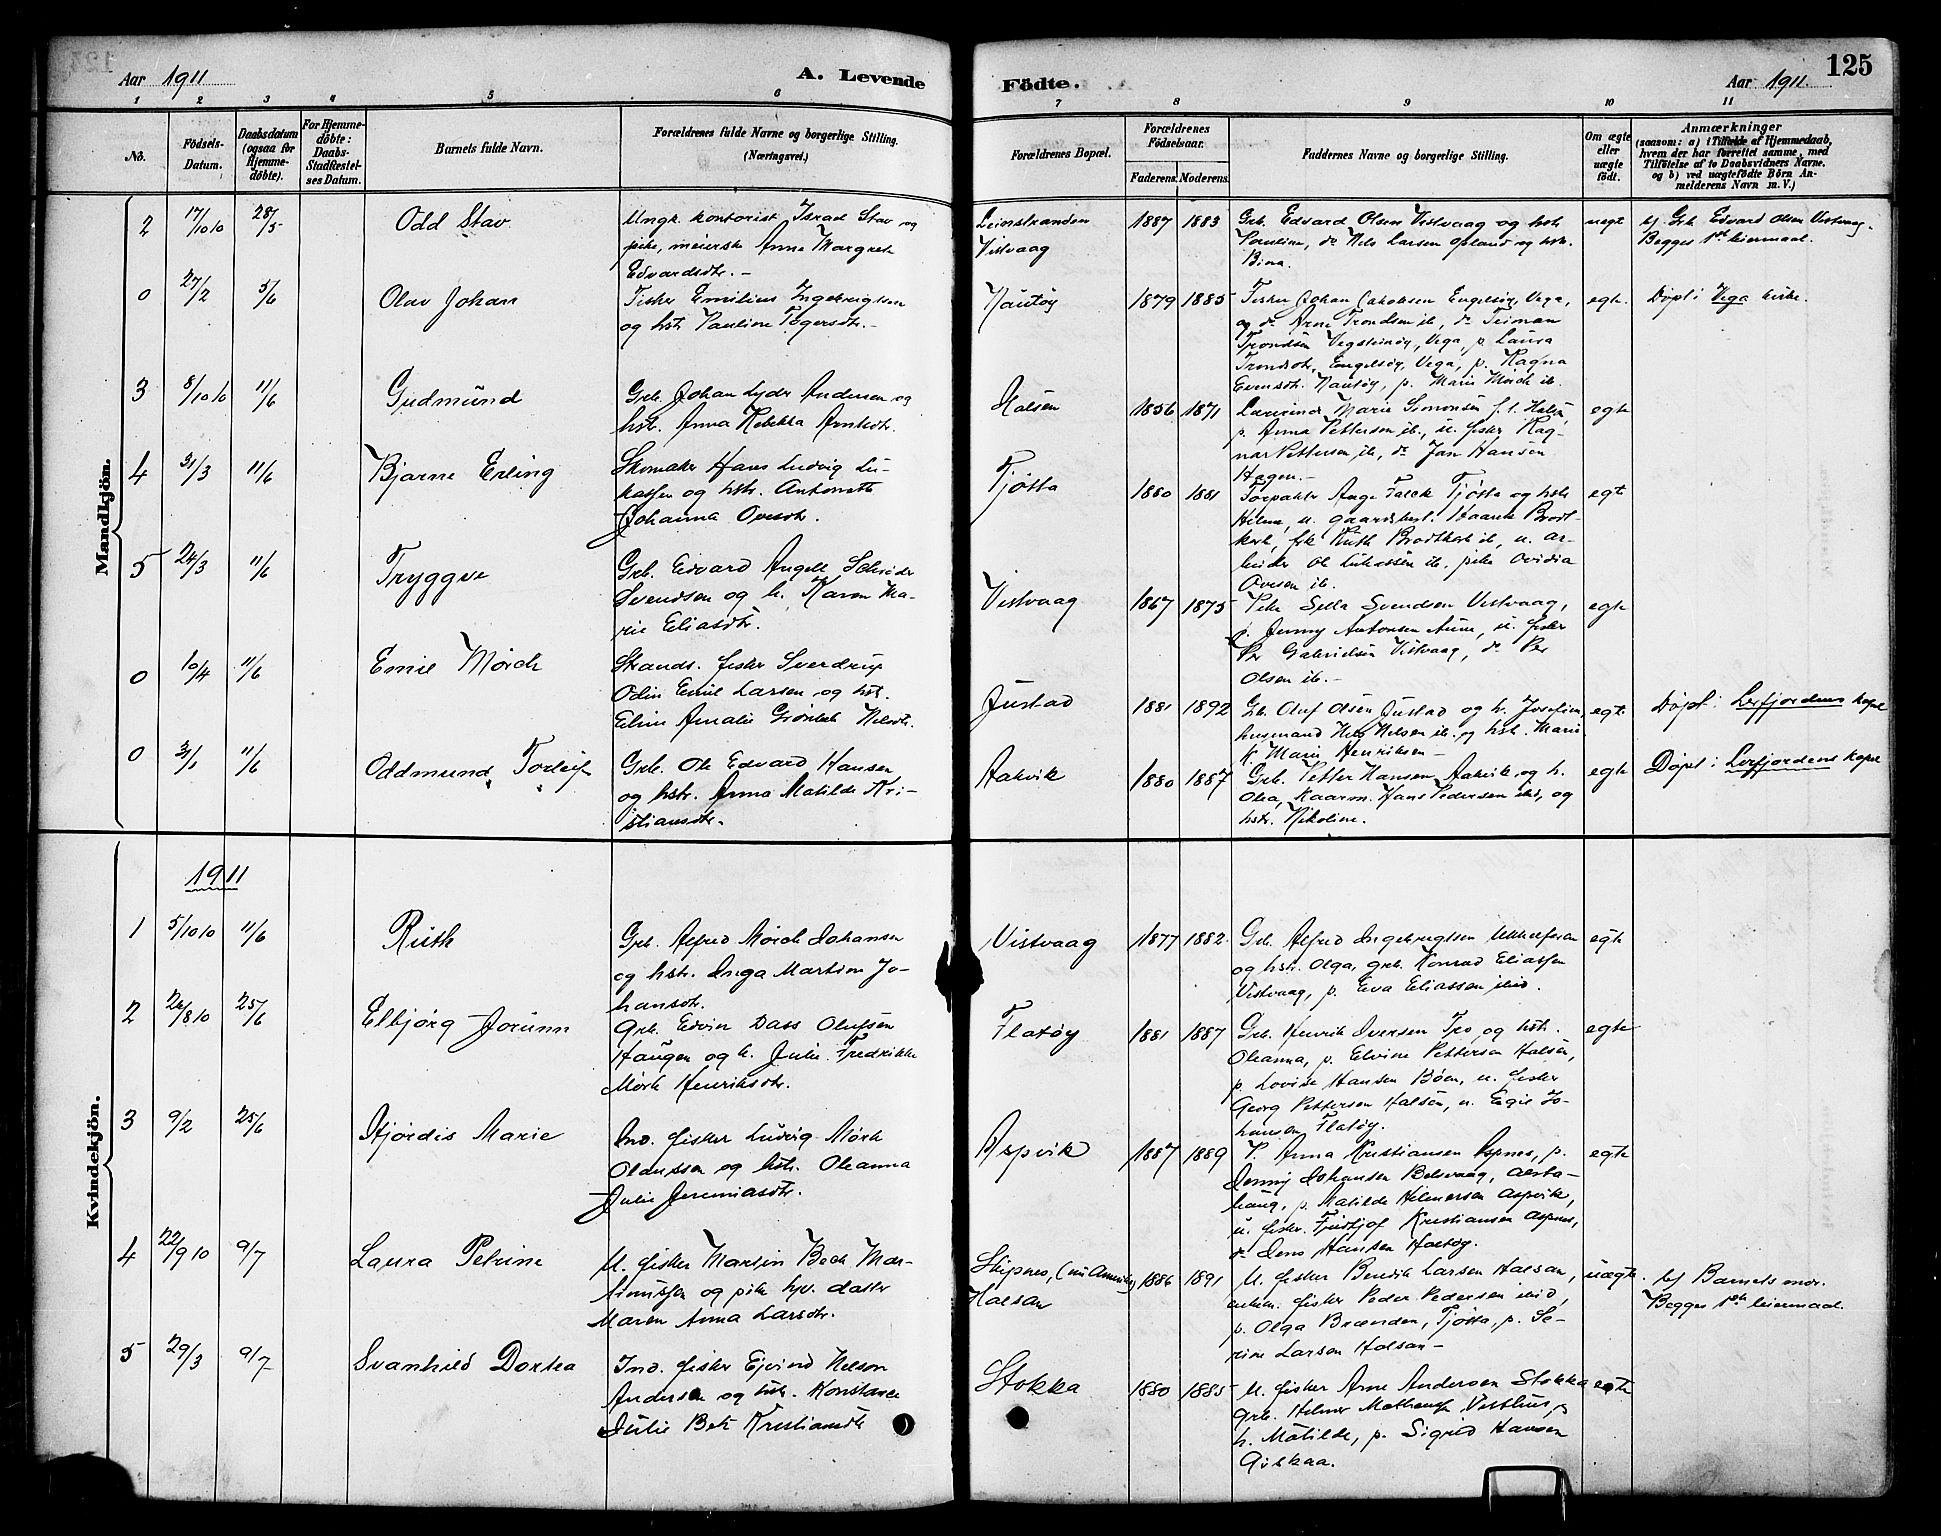 Aar 1911
A. Levende
Födte.
Aar 1911.
125
1 2 3 4 5 6 7 8 9 10 11
No.
Födsels-Datum.
Daabsdatum (ogsaa for Hjemme-döbte).
For Hjemme-döbte: Daabs-Stadfæstel-ses Datum.
Barnets fulde Navn.
Forældrenes fulde Navne og borgerlige Stilling.
(Næringsvei.)
Forældrenes Bopæl.
Forældrenes Födselsaar.
Faderens. Moderens.
Faddernes Navne og borgerlige Stilling.
Om ægte eller uægte födt.
Anmærkninger
(saasom: a) i Tilfælde af Hjemmedaab,
hvem der har forrettet samme, med
Tilföielse af to Daabsvidners Navne,
og b) ved uægtefödte Börn An-
melderens Navn m. V.)
Mandkjön.
2 17/10 10 28/5 Odd Stav
Ungk. kontorist Israel Stav og
pike, meierske Anna Margret
Edvardsdtr. -
Leinstranden
Vistvaag
1887 1883
Grb. Edvard Olsen Vistvaag og hstr.
Pauline, do Nils Larsen Opland og hstr.
Bina.
uegt
b/ Grb. Edvard Olsen Vistvaag.
Begges 1ste leiermaal.
0 27/2 5/6 Olav Johan
Fisker Emilius Ingebrigtsen
og hstr Pauline Togersdtr. -
Hautøy
1879 1885
Fisker Johan Jakobsen Engelsøy, Vega,
og do Arne Trondsen ib, do Teiman
Trondsen Vegsteinøy, Vega, p. Laura
Trondsdtr, Engelsøy, Vega, p. Ragna
Evensdtr. Hautøy, p. Marie Mork ib.
egte.
Døpt i Vega kirke.
3 8/10 10 11/6 Gudmund
Grb. Johan Lyder Andersen og
hstr. Anna Rebekka Arntsdtr.
Halsen
1856 1871
Marie Simonsen f. t. Halsen,
p. Anna Pettersen ib., u. fisker Rag-
nar Pettersen ib, do Jan Hansen
Hagen. -
egte
4 31/3 11/6 Bjarne Erling
Skomaker Hans Ludvig Lu-
kassen og hstr. Antonette
Johanna Ovesdtr.
Tjøtta
1880 1881
Forpakter Aage Falck Tjøtta og hstr
Hilma, u. gaardsbest. Haarek Brodt-
korb, frk Ruth Brodtkorb ib, u. ar-
beider Ole Lukassen ib, pike Ovidia
Ovesen ib.
egte
5 24/3 11/6 Tryggve
Grb. Edvard Angell Schrøder
Svendsen og h. Karen Ma-
rie Eliasdtr.
Vistvaag
1867 1875
Svendsen Vistvaag,
p. Jenny Antonsen Aune, u. fisker
Per Gabrielsen Vistvaag, do Per
Olsen ib. -
egte
0 10/4 11/6 Emil Mørch
Strands. fisker Sverdrup
Odin Emil Larsen og hst.
Eline Amalie Grønbek Nilsdtr.
Justad
1881 1892
Grb. Oluf Olsen Justad og h. Josefine,
husmand Nils Nilsen ib. og hstr. Marie
k. Marie Henriksen -
egte
Døpt i Leirfjordens kapel
0 3/1 11/6 Oddmund Torleif
Grb. Ole Edvard Hansen
og hstr. Anna Matilde Kri-
stiansdtr.
Aakvik
1880 1887
Grb. Petter Hansen Aakvik og h.
Olea, kaarm. Hans Pedersen ibid, og
hstr. Nikoline.
egte
Døpt i Leirfjordens kapel
Kvindekjön.
1911
1 5/10 10 11/6 Ruth
Grb. Alfred Mørch Johansen
og hstr. Inga Martine Jo-
hansdtr.
Vistvaag
1877 1882
Grb. Alfred Ingebrigtsen
og hstr. Olga, grb. Konrad Eliassen
Vistvaag, p. Eva Eliassen ibid.
egte
2 26/8 10 25/6 Elbjørg Jorunn
Grb. Edvin Dass Olufsen
Haugen og h. Julie Fredrikke
Mørk Henriksdtr.
Flatøy
1881 1887
Grb. Henrik Iversen Tro og hstr.
Oleanna, p. Elvine Pettersen Halsen,
p. Lovise Hansen Bøen, u. fisker
Georg Pettersen Halsen, u. Egil Jo-
hansen Flatøy.
egte
3 9/2 25/6 Hjørdis Marie
Ind. fisker Ludvig Mørk
Olaussen og hstr. Oleanna
Julie Jeremiasdtr.
Aspvik
1887 1889
P. Anna Kristiansen Aspnes, p.
Jenny Johansen Belsvaag, Alsta-
haug, p. Matilde Helmersen Aspvik,
u. fisker Fridtjof Kristiansen Aspnes,
do Jens Hansen Hortøy.
egte
4 22/9 10 9/7 Laura Petrine
U. fisker Martin Bech Mar-
tinussen og pike hjv. datter
Maren Anna Larsdtr.
Skipnes, (nu Amerika)
Halsan
1886 1891
U. fisker Bendik Larsen Halsan,
enkem. fisker Peder Pedersen ibid,
p. Olga Brænden, Tjøtta, p. Se-
rine Larsen Halsan -
uægte.
b/ Barnets mor.
Begges 1ste leiermaal.
5 29/3 9/7 Svanhild Dortea
Ind. fisker Eivind Nelson
Andersen og hstr. Konstance
Julie Bek Kristiansdtr
Stokka
1880 1885
U. fisker Arne Andersen Stokka
grb. Helmer Mathensen Vesthus, og
h. Matilde, p. Sigrid Hansen
Giskaa.
egte